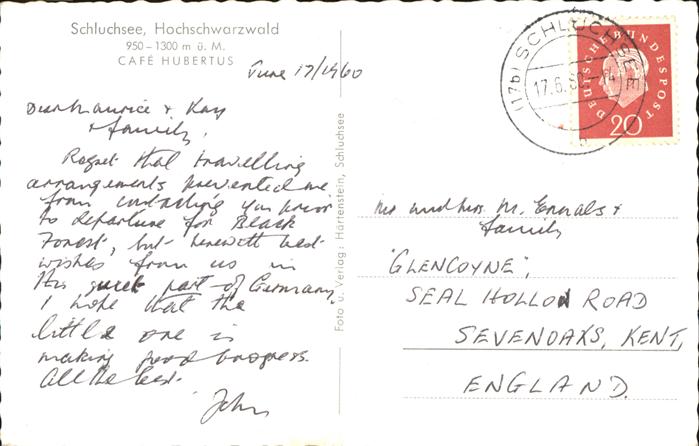 Schluchsee, Hochschwarzwald
950–1300 m ü. M.
CAFÉ HUBERTUS
June 17/1960
Dear Maurice + Kay
+ family,
Regret that travelling
arrangements prevented me
from contacting you prior
to departure for Black
Forest, but herewith best
wishes from us in
this quiet part of Germany.
I hope that the
little one is
making good progress.
All the best.
John
Foto u. Verlag: Hartenstein, Schluchsee
(17b) SCHLUCHSEE
17.6.60
b
DEUTSCHE BUNDESPOST
20
Mr and Mrs. M. Ennals +
family
'GLENCOYNE',
SEAL HOLLOW ROAD
SEVENOAKS, KENT,
ENGLAND.